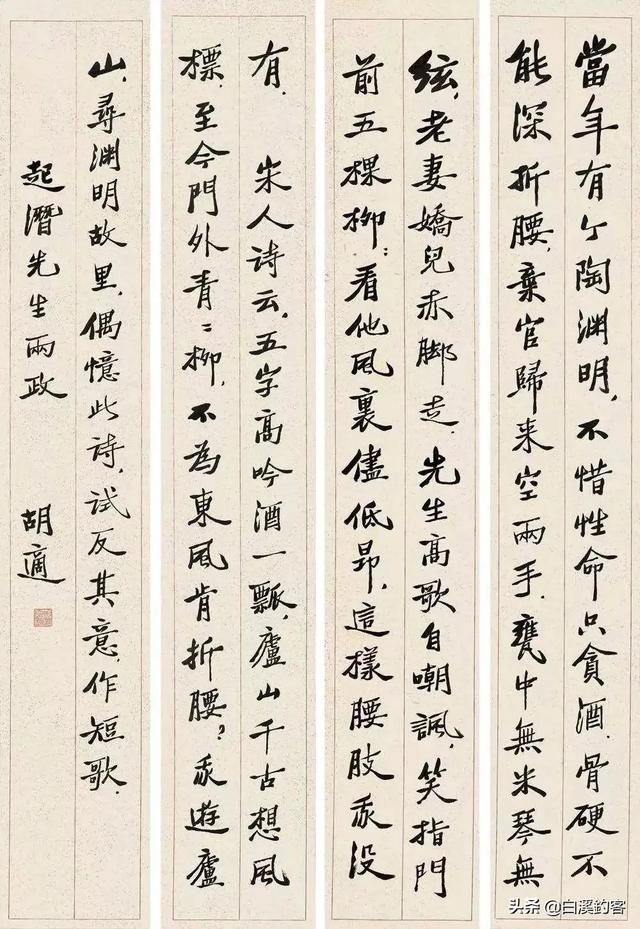 當年有个陶淵明，不惜性命只貪酒。骨硬不
能深折腰，棄官歸来空兩手。甕中無米琴無
絃，老妻嬌兒赤脚走。先生高歌自嘲諷，笑指門
前五棵柳：看他風裏儘低昂，這樣腰肢我没
有。　宋人诗云，五字高吟酒一瓢，廬山千古想風
標，至今門外青〻柳，不為東風肯折腰？我遊廬
山，尋淵明故里，偶憶此诗，试反其意，作短歌．
起潛先生兩政　胡適
头条 @白溪釣客